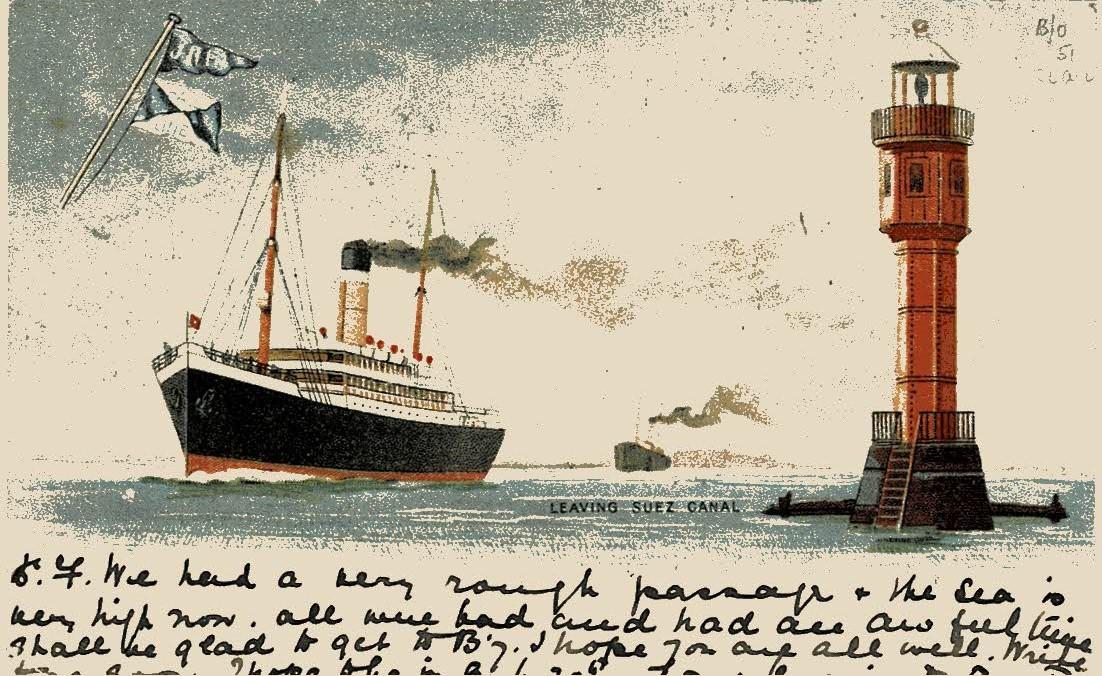 B/o
51
LEAVING SUEZ CANAL
D. F. We had a very rough passage & the Sea is
very high now. all were bad and had an awful time
shall be glad to get to B'y. I hope you are all well. Write
hope the in